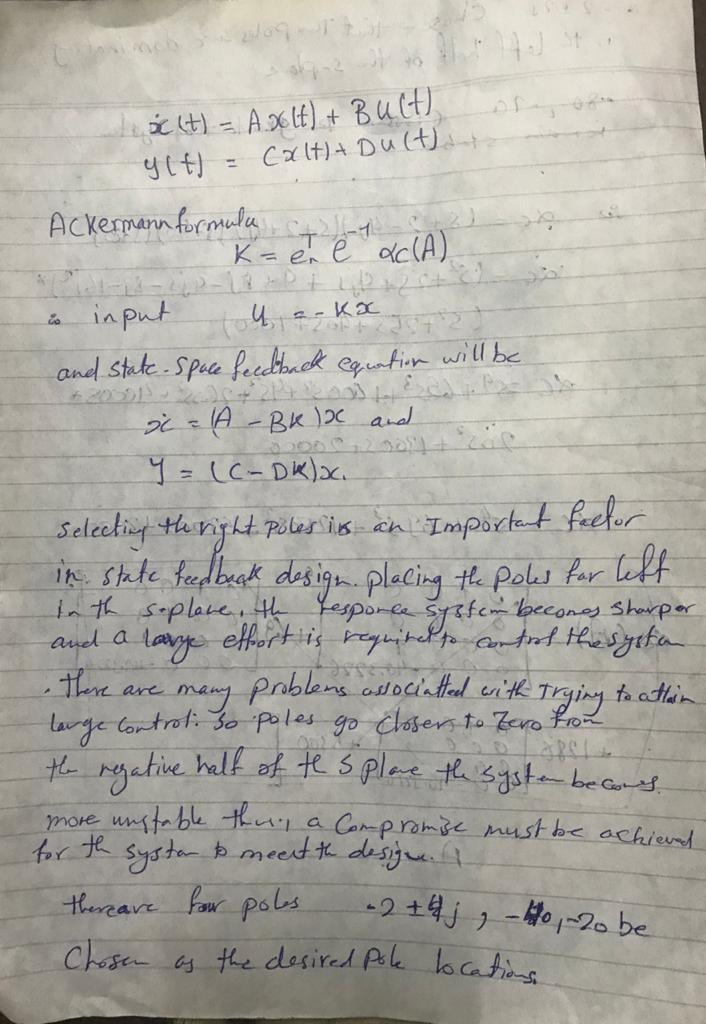 ẋ(t) = Ax(t) + Bu(t)
y(t) = Cx(t) + Du(t)
Ackermann formula
K = eₙᵀ e⁻¹ αc(A)
∴ input u = -Kx
and state-space feedback equation will be
ẋ = (A - BK)x and
y = (C - DK)x.
selecting the right poles is an Important factor
in state feedback design. placing the poles far left
in th s-plane, the responce system becomes sharper
and a large effort is required to control the system
. there are many problems associatted with Trying to attain
large control. So poles go closer to Zero from
the negative half of th s plane the system becomes
more unstable thus, a Compromise must be achieved
for th system to meert th design.
there are four poles -2 ± 4j, -10, -20 be
Chosen as the desired Pole locations.